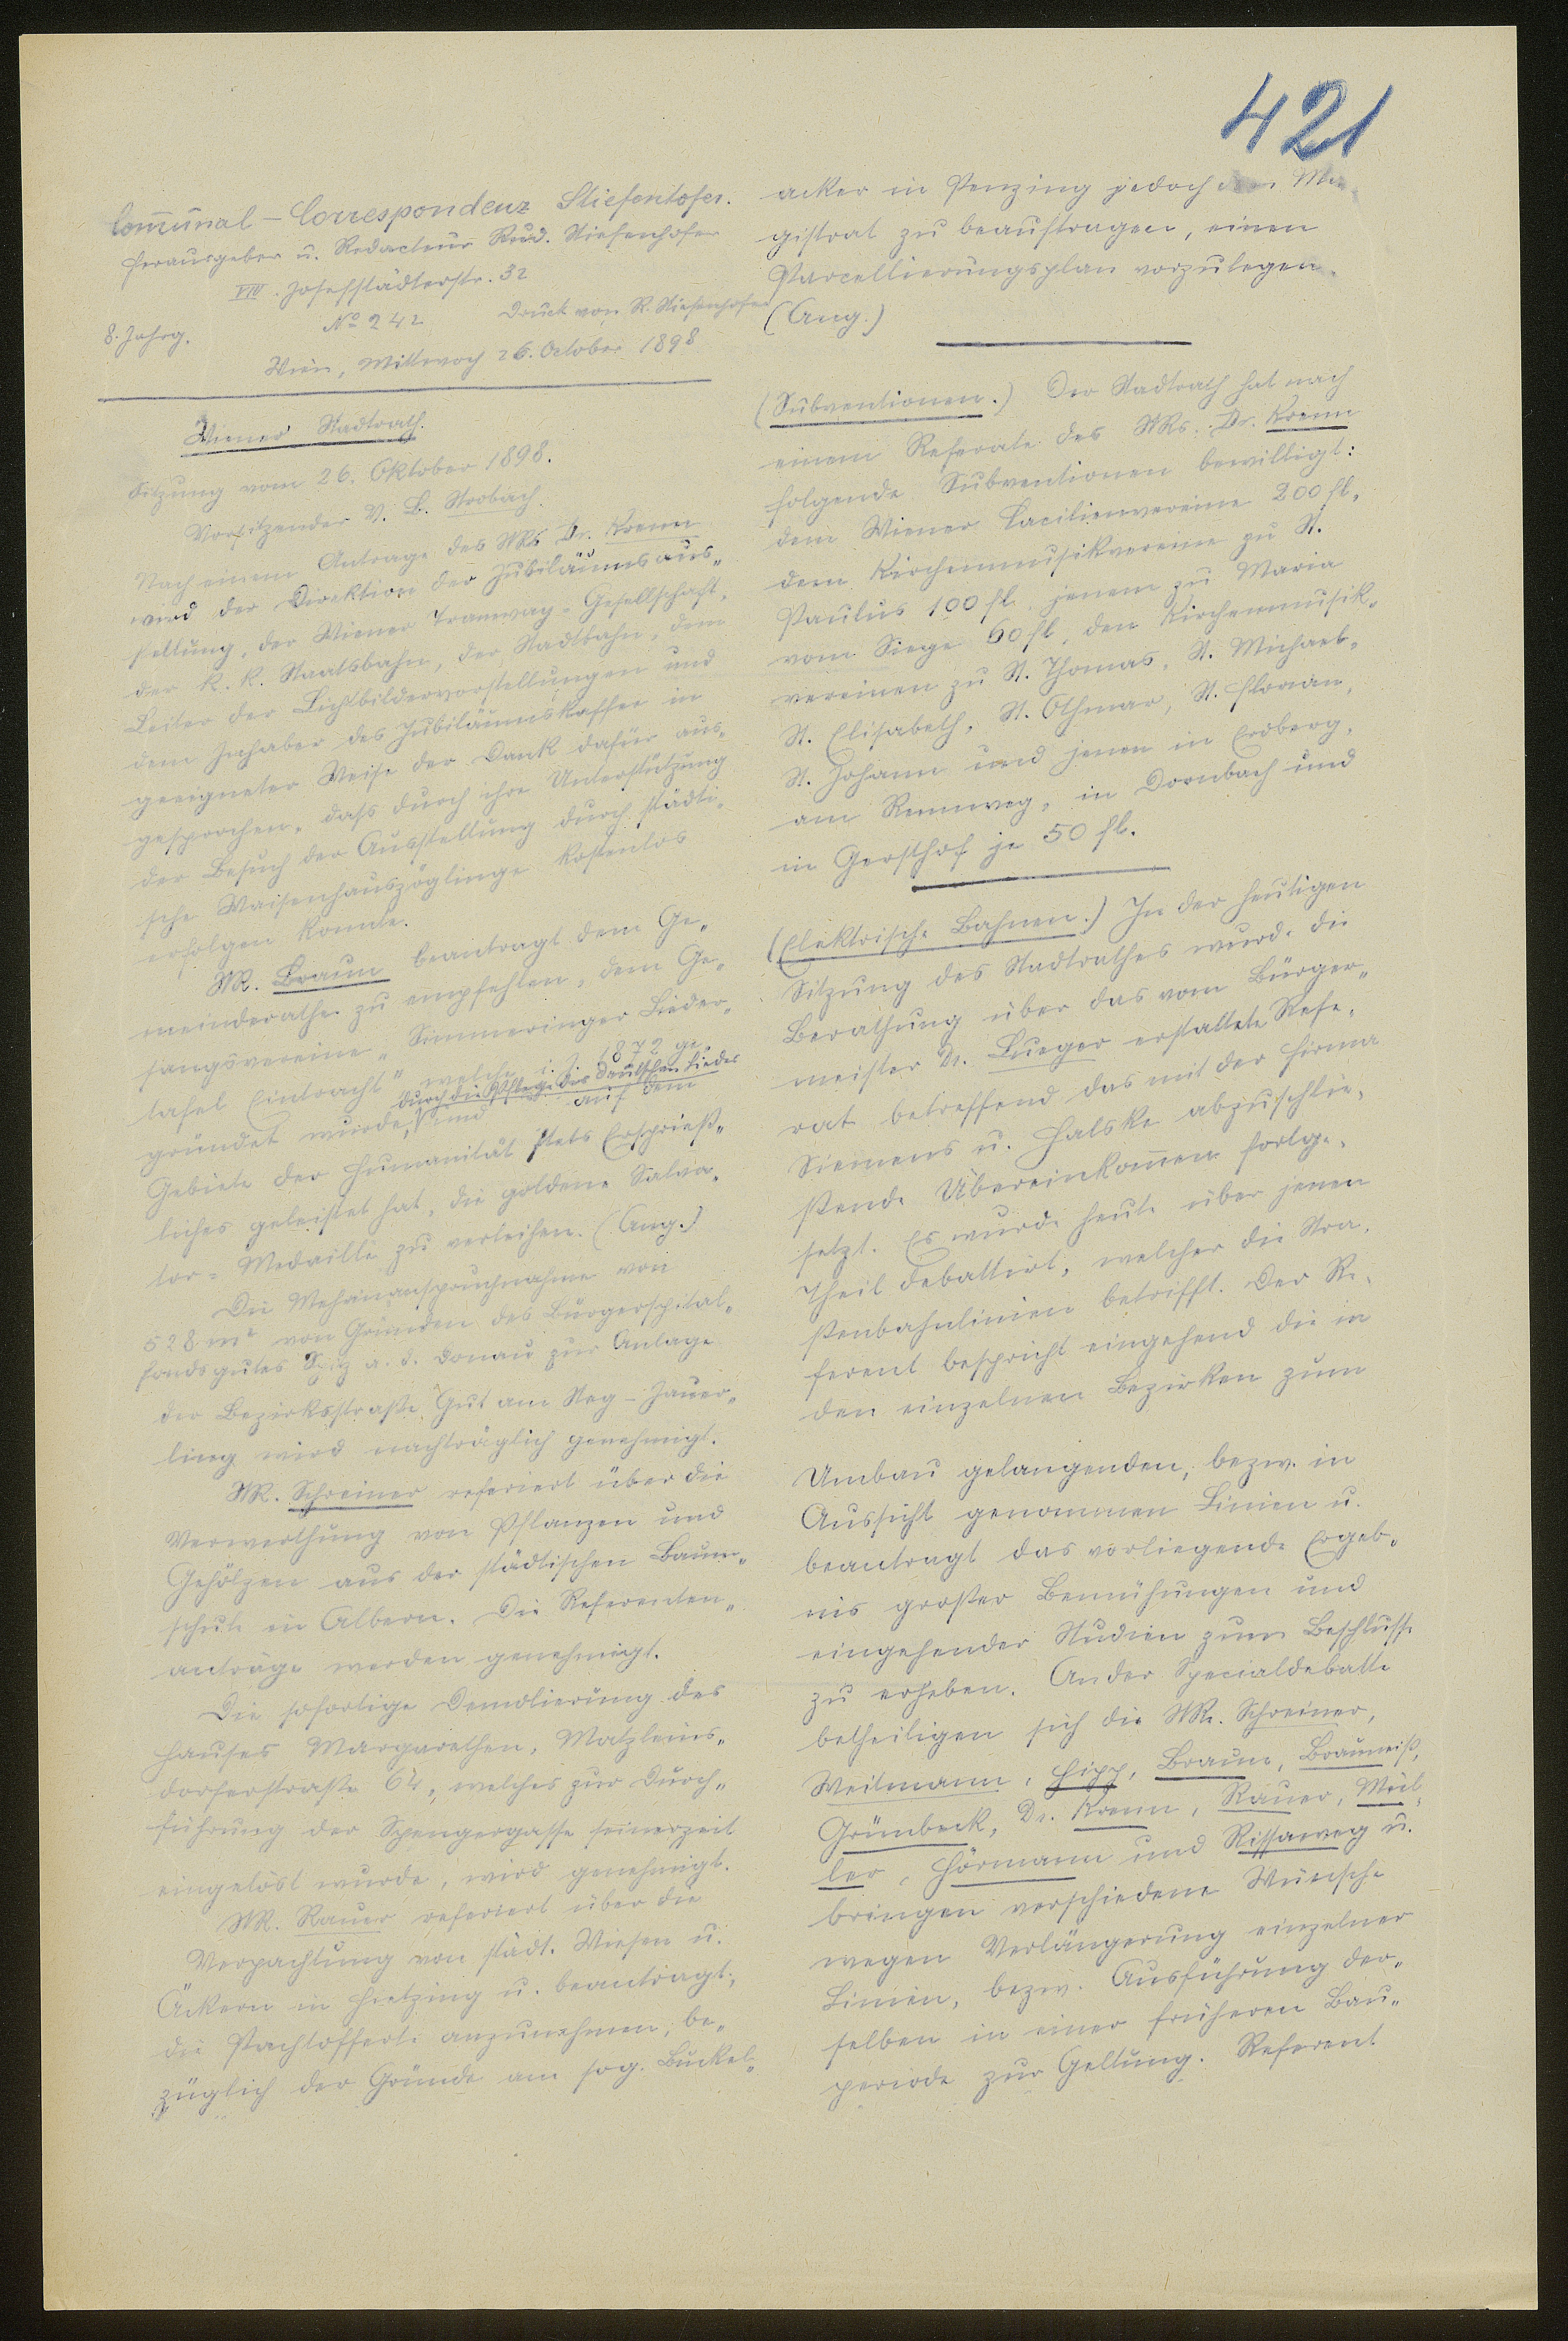 421
Com̄unal-Correspondenz Stiefenhofer.
Herausgeber u. Redacteur Rud. Stiefenhofer
VIII. Josefstädterstr. 32
8. Jahrg. No 242 Druck von R. Stiefenhofer
Wien, Mittwoch 26. October 1898
Wiener Stadtrath.
Sitzung vom 26. Oktober 1898.
Vorsitzender V. B. Strobach.
Nach einem Antrage des StRs Dr. Krenn
wird der Direktion der Jubiläumsaus-
stellung, der Wiener Tramway-Gesellschaft,
der k. k. Staatsbahn, der Stadtbahn, dem
Leiter der Lichtbildervorstellungen und
dem Inhaber des Jubiläumskaffee in
geeigneter Weise der Dank dafür aus-
gesprochen, daß durch ihre Unterstützung
der Besuch der Ausstellung durch städti-
sche Waisenhauszöglinge kostenlos
erfolgen konnte.
StR. Braun beantragt dem Ge-
meinderathe zu empfehlen, dem Ge-
sangsvereine „Simmeringer Lieder-
tafel Eintracht", welche i. J. 1872 ge-
durch die Pflege des deutschen Liedes
gründet wurde, und auf dem
Gebiete der Humanität stets Ersprieß-
liches geleistet hat, die goldene Salva-
tor-Medaille zu verleihen. (Ang.)
Die Mehrinanspruchnahme von
528 m² von Gründen des Bürgerspital-
fondsgutes Spitz a. d. Donau zur Anlage
der Bezirksstraße Gut am Steg-Jauer-
ling wird nachträglich genehmigt.
StR. Schreiner referiert über die
Verwerthung von Pflanzen und
Gehölzen aus der städtischen Baum-
schule in Albern. Die Referenten-
anträge werden genehmigt.
Die sofortige Demolierung des
Hauses Margarethen, Matzleins-
dorferstraße 64, welches zur Durch-
führung der Spengergasse seinerzeit
eingelöst wurde, wird genehmigt.
StR. Rauer referiert über die
Verpachtung von städt. Wiesen u.
Äckern in Hietzing u. beantragt,
die Pachtofferte anzunehmen, be-
züglich der Gründe am sog. Buckel-
acker in Penzing jedoch den Ma-
gistrat zu beauftragen, einen
Parcellierungsplan vorzulegen.
(Ang.)
(Subventionen.) Der Stadtrath hat nach
einem Referate des StRs. Dr. Krenn
folgende Subventionen bewilligt:
dem Wiener Cäcilienvereine 200 fl,
dem Kirchenmusikvereine zu St.
Paulus 100 fl, jenem zu Maria
vom Siege 60 fl, den Kirchenmusik-
vereinen zu St. Thomas, St. Michael,
St. Elisabeth, St. Othmar, St. Florian,
St. Johann und jenen in Erdberg,
am Rennweg, in Dornbach und
in Gersthof je 50 fl.
(Elektrische Bahnen.) In der heutigen
Sitzung des Stadtrathes wurde die
Berathung über das vom Bürger-
meister Dr. Lueger erstattete Refe-
rat betreffend das mit der Firma
Siemens u. Halske abzuschlie-
ßende Übereinkom̄en fortge-
setzt. Es wurde heute über jenen
Theil debattirt, welcher die Stra-
ßenbahnlinien betrifft. Der Re-
ferent bespricht eingehend die in
den einzelnen Bezirken zum
Umbau gelangenden, bezw. in
Aussicht genommen Linien u.
beantragt das vorliegende Ergeb-
nis großer Bemühungen und
eingehender Studien zum Beschlusse
zu erheben. An der Specialdebatte
betheiligen sich die StRe. Schreiner,
Weitmann, Hipp, Braun, Brauneiß,
Grünbeck, Dr. Krenn, Rauer, Mül-
ler, Hörmann und Rissaweg u.
bringen verschiedene Wünsche
wegen Verlängerung einzelner
Linien, bezw. Ausführung der-
selben in einer früheren Bau-
periode zur Geltung. Referent